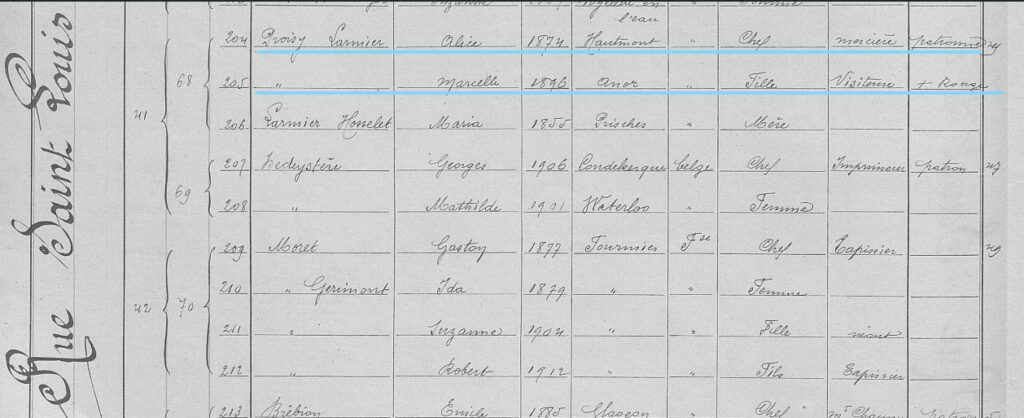 Rue Saint Louis
l'eau
204 Proisy Larmier Alice 1874 Hautmont " Chef mercière patronne
68 205 " Marcelle 1896 Anor " Fille Visiteuse + Rouge
41 206 Larmier Hosselet Maria 1855 Prisches " Mère
207 Georges 1906 belge Chef Imprimeur patron 47
69 208 " Mathilde 1901 Waterloo " Femme
209 Moret Gaston 1877 Fourmies Fse Chef Tapissier 49
210 " Gerimont Ida 1879 " " Femme
42 70
211 " Suzanne 1904 " " Fille néant
212 " Robert 1912 " " Fils Tapissier
213 Emile 1885 Chef patron